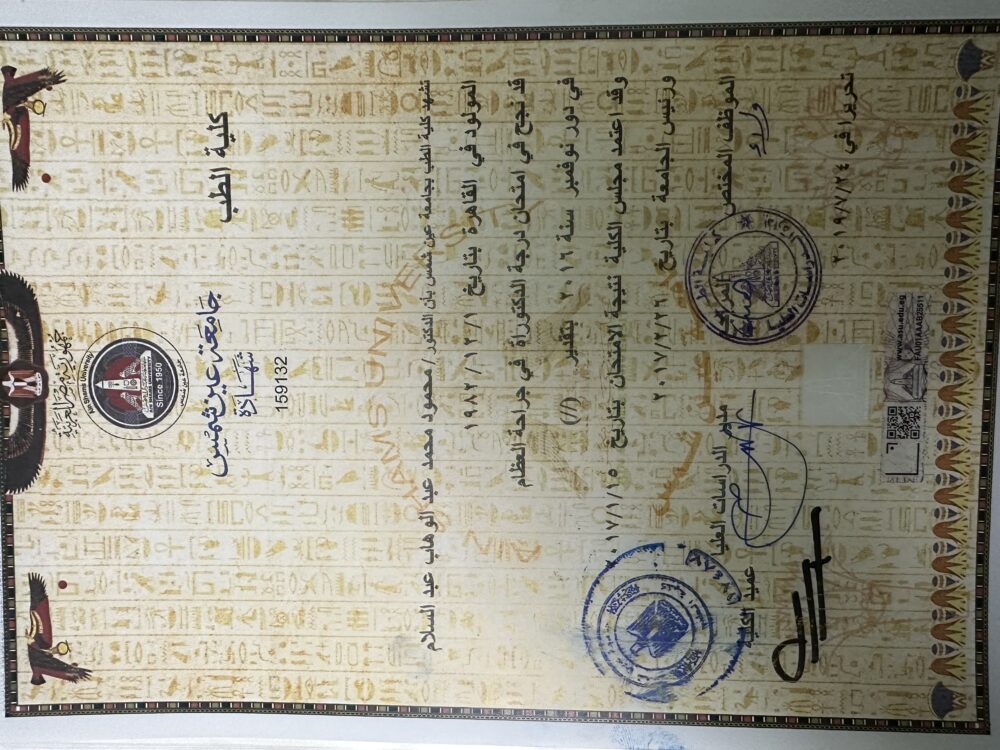 جمهورية مصر العربية
Ain Shams University
Since 1950
جامعة عين شمس
كلية الطب
شهادة
159132
تشهد كلية الطب بجامعة عين شمس بأن الدكتور / محمود محمد عبد الوهاب عبد السلام
المولود في القاهرة بتاريخ ١٩٨٢/١٢/١
قد نجح في امتحان درجة الدكتوراة في جراحة العظام
في دور نوفمبر سنة ٢٠١٦ بتقدير (//)
وقد اعتمد مجلس الكلية نتيجة الامتحان بتاريخ ٢٠١٧/١/١٥
ورئيس الجامعة بتاريخ ٢٠١٧/٢/٢٦
الموظف المختص
مدير الدراسات العليا
عميد الكلية
تحريرا في ٢٠١٩/٧/٢٤
www.asu.edu.eg
AIN SHAMS UNIVERSITY